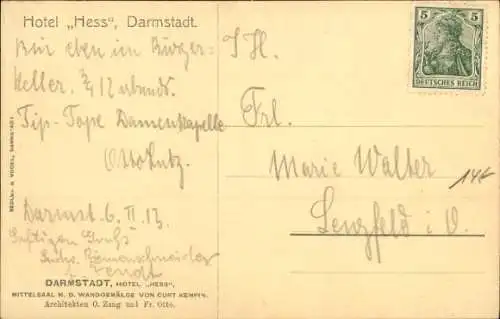 Hotel „Hess", Darmstadt.
Bin eben im Bürger=
Keller. ¾ 12 abends.
Tip-Tope Damenkapelle
Otto Lutz.
Darmst. 6. II. 13.
DARMSTADT, HOTEL „HESS",
MITTELSAAL M. D. WANDGEMÄLDE VON CURT KEMPIN.
Architekten O. Zang und Fr. Otto.
I. H.
Frl.
Marie Walter
Lengfeld i. O.
5 5
DEUTSCHES REICH